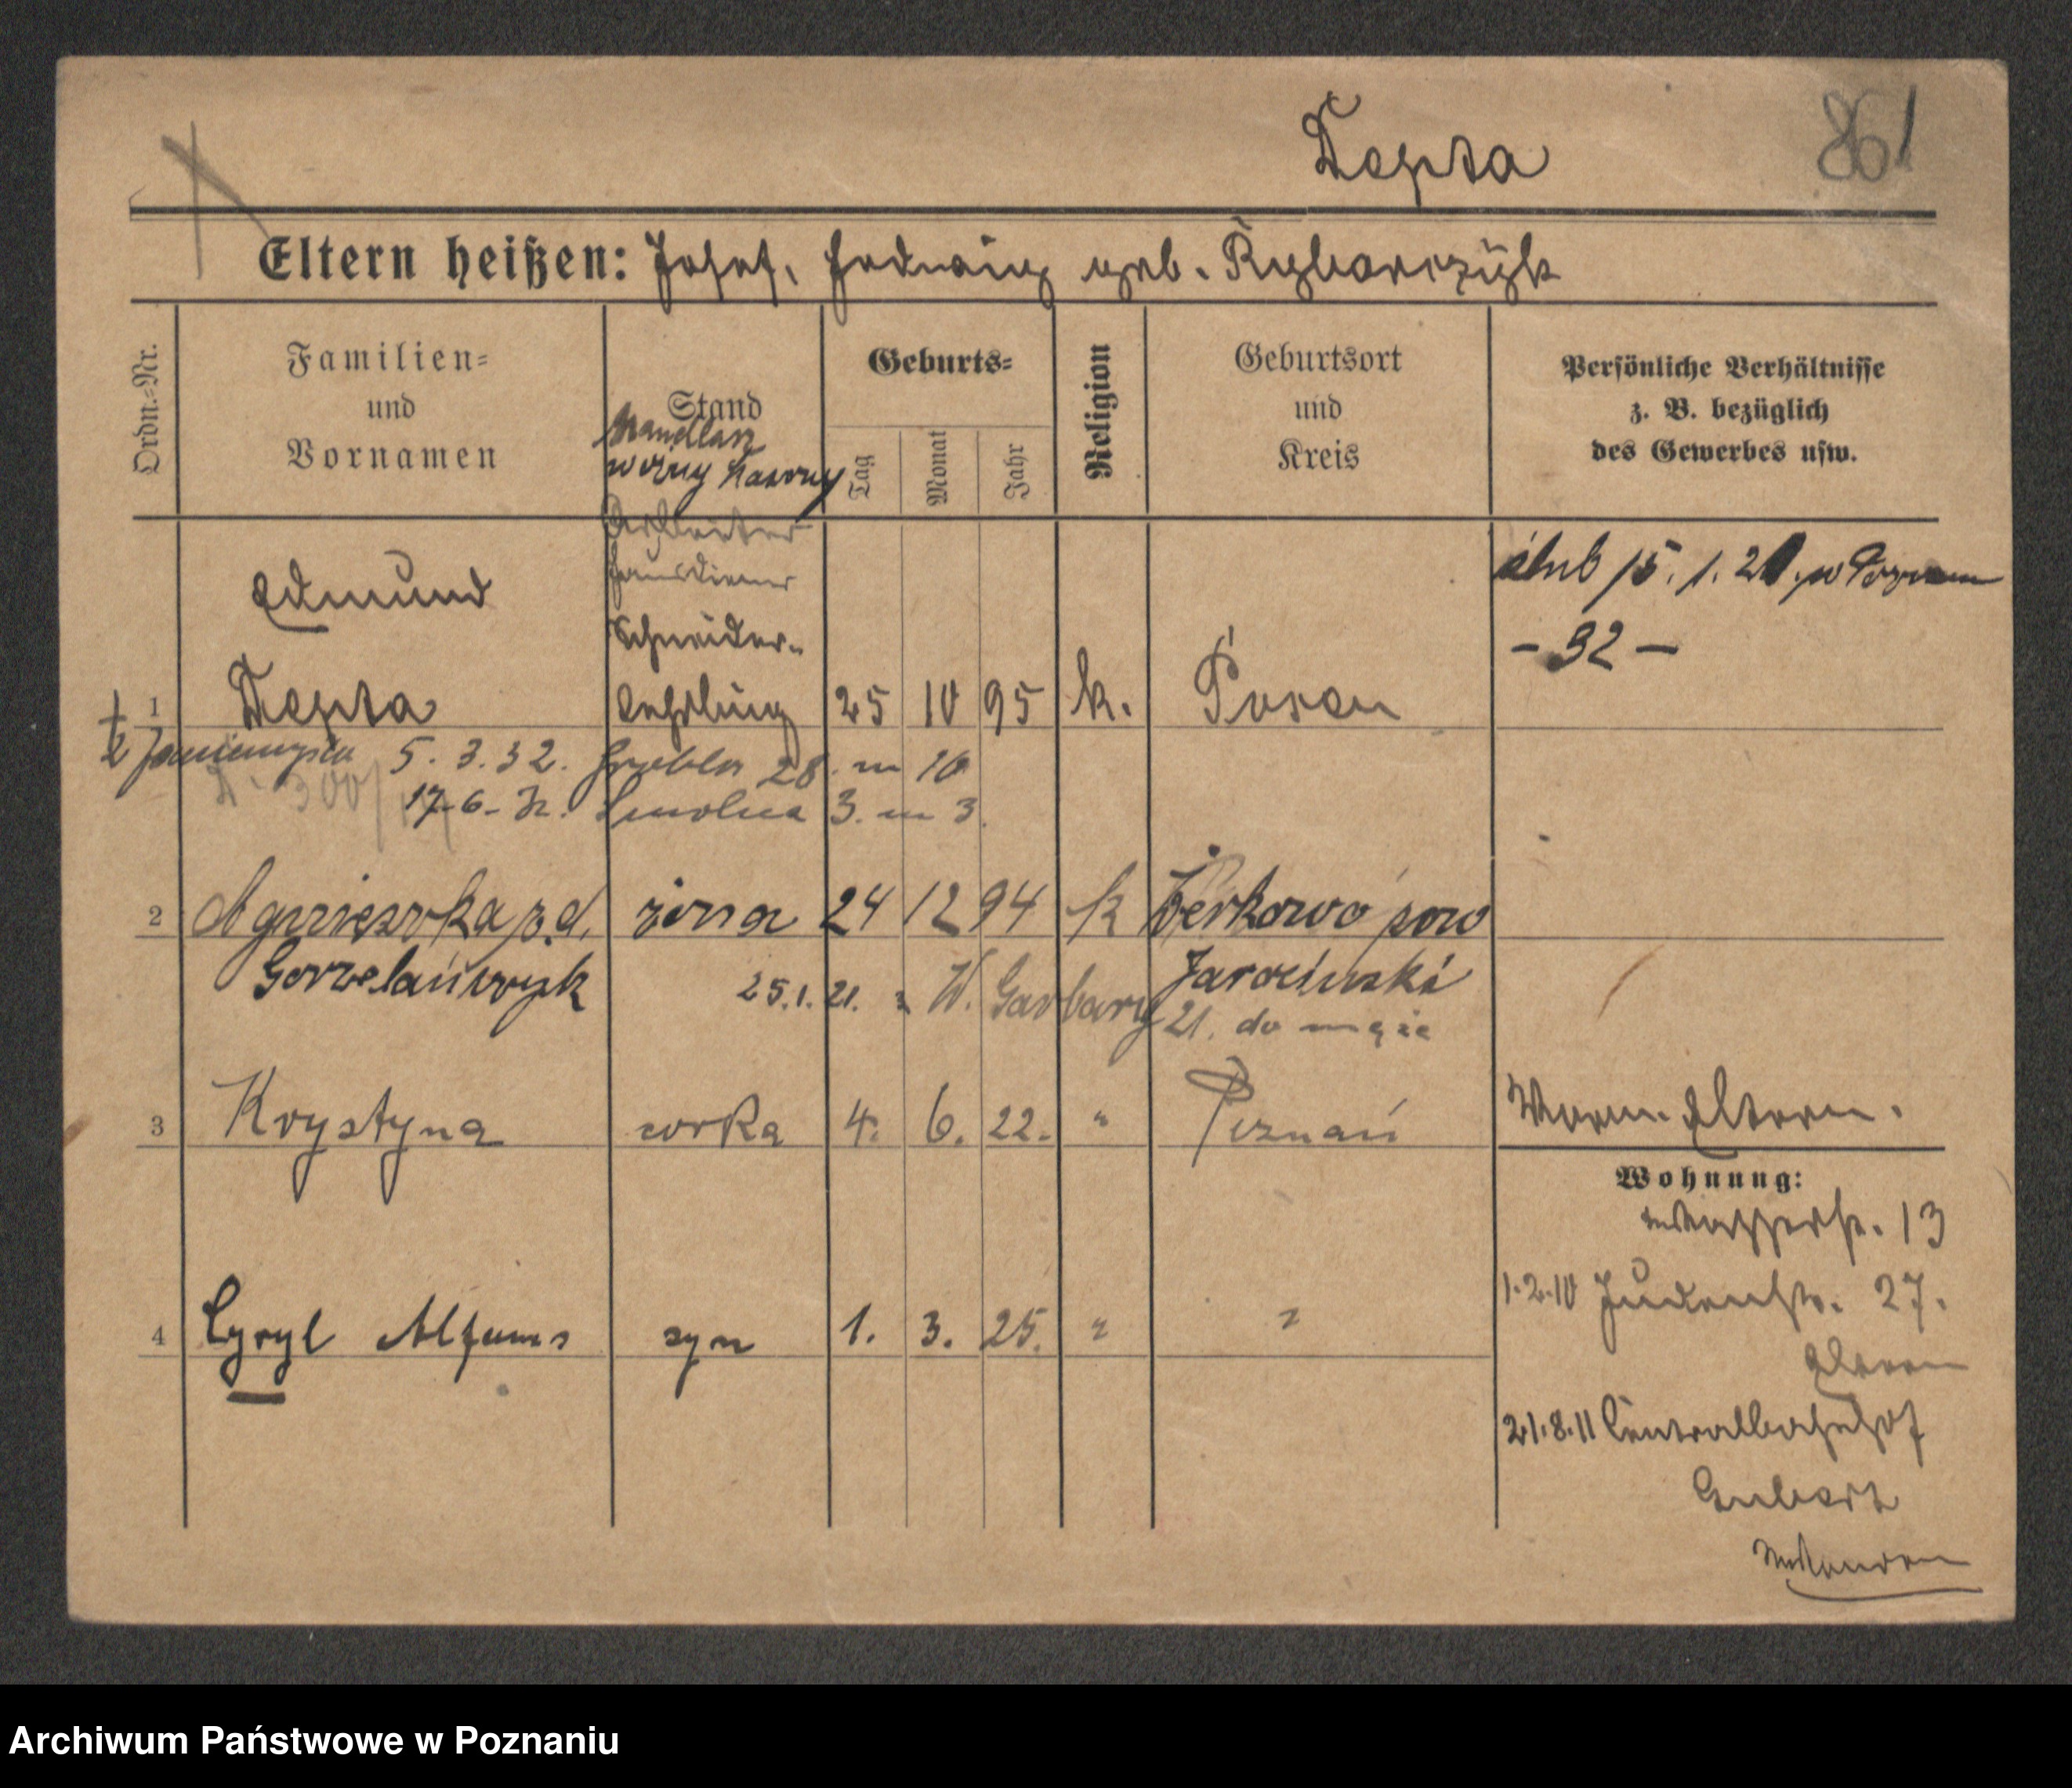 Depta
861
Eltern heißen: Josef, Hedwig geb. Rybarczyk
Ordn.-Nr.
Familien-
und
Vornamen
Stand
Handlarz
woźny kasowy
Geburts-
Tag
Monat
Jahr
Religion
Geburtsort
und
Kreis
Persönliche Verhältnisse
z. B. bezüglich
des Gewerbes usw.
Arbeiter
Hausdiener
Edmund
Schneider-
ślub 15. 1. 21. w Poznan
- 32 -
1 Depta Lehrling 25 10 95 k. Posen
z Zaniemyśla 5. 3. 32. Grobla 28. m 10
17-6-32. Smolna 3. m 3.
2 Agnieszka z. d. żona 24 12 94 k Żerkowo pow
Gorzelańczyk Jarociński
25.1.21. z W. Garbary 21. do męża
3 Krystyna corka 4. 6. 22. " Poznań
Vorm. Eltern.
Wohnung:
Wasserstr. 13
4 Cyryl Alfons syn 1. 3. 25. " "
1.2.10 Judenstr. 27.
Eltern
21.8.11 Centralbahnhof
Archiwum Państwowe w Poznaniu